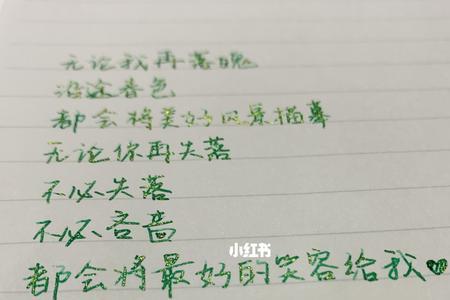 无论我再落魄
沿途春色
都会将美好风景描摹
无论你再失落
不必失落
不必吝啬
小红书
都会将最好的笑容给我♥